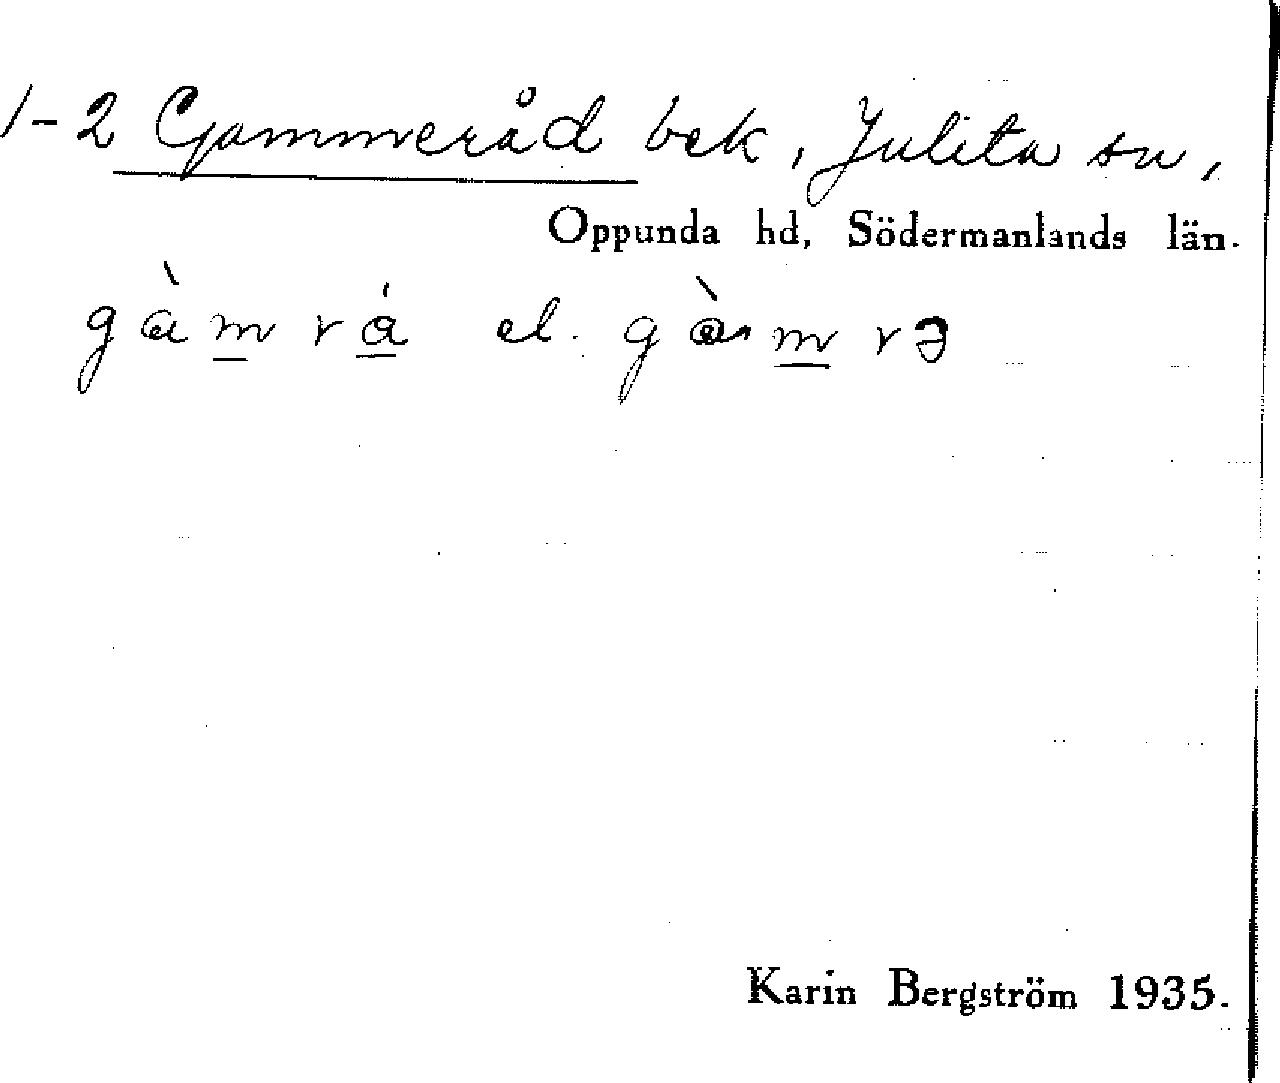 1-2 Gammeråd bek, Julita sn,
Oppunda hd, Södermanlands län.
el.
Karin Bergström 1935.